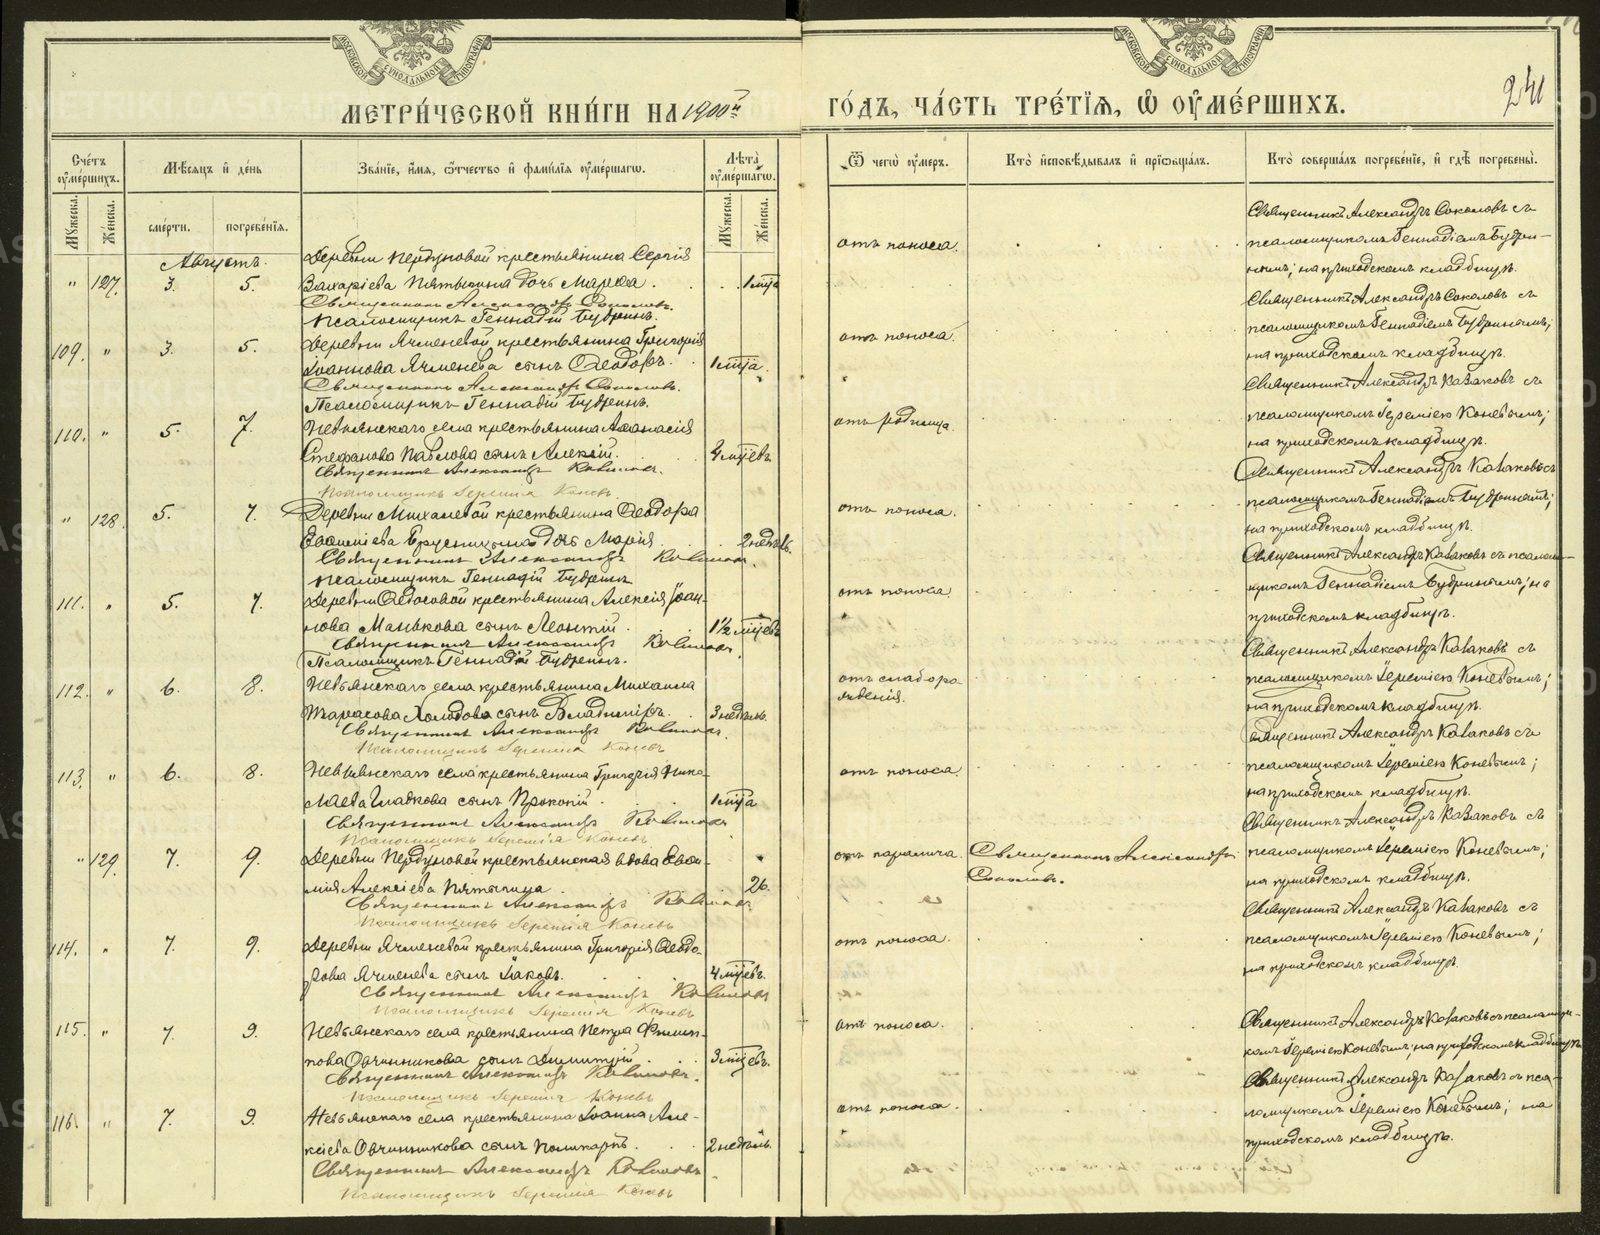 МЕТРИ́ЧЕСКОЙ КНИ́ГИ НА 1900й
ГО́ДЪ, ЧА́СТЬ ТРЕ́ТЇѦ, Ѡ҆ ОУ҆МЕ́РШИХЪ.
241
МОСКОВСКОЙ СѴНОДАЛЬНОЙ ТИПОГРАФІИ
МОСКОВСКОЙ СѴНОДАЛЬНОЙ ТИПОГРАФІИ
Сче́тъ оу҆ме́ршихъ.
Мѣ́сяцъ и҆ де́нь
Зва́нїе, и҆́мя, ѻ҆́тчество и҆ фами́лїя оу҆ме́ршагѡ.
Лѣ́та оу҆ме́ршагѡ.
Ѿ чегѡ̀ оу҆́меръ.
Кто̀ и҆сповѣ́дывалъ и҆ прїѡбща́лъ.
Кто̀ соверша́лъ погребе́нїе, и҆ гдѣ̀ погребены̀.
Мꙋ́жеска.
Же́нска.
сме́рти.
погребе́нїя.
Мꙋ́жеска.
Же́нска.
Августъ.
Деревни Пердуновой крестьянина Сергія
" 127. 3. 5. Захаріева Пятыгина дочь Марѳа. 1 мца
Священникъ Александръ Соколовъ.
Псаломщикъ Геннадій Будринъ.
отъ поноса.
Священникъ Александръ Соколовъ съ
псаломщикомъ Геннадіемъ Будри-
нымъ; на приходскомъ кладбищѣ.
109. " 3. 5. Деревни Ячменевой крестьянина Григорія
Іоаннова Ячменева сынъ Ѳеодоръ. 1 мца.
Священникъ Александръ Соколовъ.
Псаломщикъ Геннадій Будринъ.
отъ поноса.
Священникъ Александръ Соколовъ съ
псаломщикомъ Геннадіемъ Будринымъ;
на приходскомъ кладбищѣ.
110. " 5. 7. Невьянскаго села крестьянина Аѳанасія
Стефанова Павлова сынъ Алексій. 4 мцевъ
Священникъ Александръ Казаковъ.
Псаломщикъ Іеремія Коневъ.
отъ родимца.
Священникъ Александръ Казаковъ съ
псаломщикомъ Іереміею Коневымъ;
на приходскомъ кладбищѣ.
" 128. 5. 7. Деревни Михалевой крестьянина Ѳеодора
Евѳиміева дочь Марія. 2 недѣль.
Священникъ Александръ Казаковъ
Псаломщикъ Геннадій Будринъ
отъ поноса.
Священникъ Александръ Казаковъ съ
псаломщикомъ Геннадіемъ Будринымъ;
на приходскомъ кладбищѣ.
111. " 5. 7. Деревни Ѳедосовой крестьянина Алексія Іоан-
нова Манькова сынъ Леонтій. 1½ мцевъ
Священникъ Александръ Казаковъ.
Псаломщикъ Геннадій Будринъ.
отъ поноса
Священникъ Александръ Казаковъ съ псалом-
щикомъ Геннадіемъ Будринымъ; на
приходскомъ кладбищѣ.
112. " 6. 8. Невьянскаго села крестьянина Михаила
Тарасова Холодова сынъ Владиміръ. 3 недѣль.
Священникъ Александръ Казаковъ.
Псаломщикъ Іеремія Коневъ
отъ слаборо-
жденія.
Священникъ Александръ Казаковъ съ
псаломщикомъ Іереміею Коневымъ;
на приходскомъ кладбищѣ.
113. " 6. 8. Невьянскаго села крестьянина Григорія Нико-
лаева Гладкова сынъ Прокопій. 1 мца
Священникъ Александръ Казаковъ
Псаломщикъ Іеремія Коневъ
отъ поноса.
Священникъ Александръ Казаковъ съ
псаломщикомъ Іереміею Коневымъ;
на приходскомъ кладбищѣ.
" 129. 7. 9. Деревни Пердуновой крестьянская вдова Евѳи-
мия Алексіева Пятыгина. 26.
Священникъ Александръ Казаковъ
Псаломщикъ Іеремія Коневъ
отъ паралича.
Священникъ Александръ
Соколовъ.
Священникъ Александръ Казаковъ съ
псаломщикомъ Іереміею Коневымъ;
на приходскомъ кладбищѣ.
114. " 7. 9. Деревни Ячменевой крестьянина Григорія Ѳеодо-
рова Ячменева сынъ Іаковъ. 4 мцевъ.
Священникъ Александръ Казаковъ
Псаломщикъ Іеремія Коневъ
отъ поноса.
Священникъ Александръ Казаковъ съ
псаломщикомъ Іереміею Коневымъ;
на приходскомъ кладбищѣ.
115. " 7. 9. Невьянскаго села крестьянина Петра Филип-
пова Овчинникова сынъ Димитрій. 3 мцевъ.
Священникъ Александръ Казаковъ.
Псаломщикъ Іеремія Коневъ
отъ поноса.
Священникъ Александръ Казаковъ съ псаломщи-
комъ Іереміею Коневымъ; на приходскомъ кладбищѣ
116. " 7. 9. Невьянскаго села крестьянина Іоанна Але-
ксіева Овчинникова сынъ Поликарпъ. 2 недѣль.
Священникъ Александръ Казаковъ
Псаломщикъ Іеремія Коневъ
отъ поноса.
Священникъ Александръ Казаковъ съ пса-
ломщикомъ Іереміею Коневымъ; на
приходскомъ кладбищѣ.